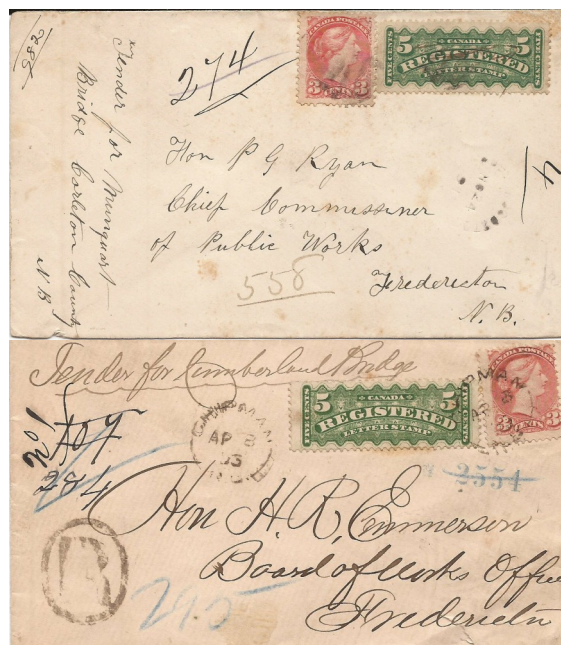 982
Tender for Munquart
Bridge Carleton County
N B
274
CANADA POSTAGE
3 CENTS 3
CANADA
5 REGISTERED 5
LETTER STAMP
FIVE CENTS
FIVE CENTS
Hon P G Ryan
Chief Commissiner
of Public Works
Fredericton
N.B.
558
4
Tender for Cumberland Bridge
201
107
274
CHIPMAN
AP 8
95
N.B.
CANADA
5 REGISTERED 5
LETTER STAMP
FIVE CENTS
FIVE CENTS
CANADA POSTAGE
3 CENTS
2554
Hon H. R. Emmerson
Board of Works Office
Fredericton
R
245